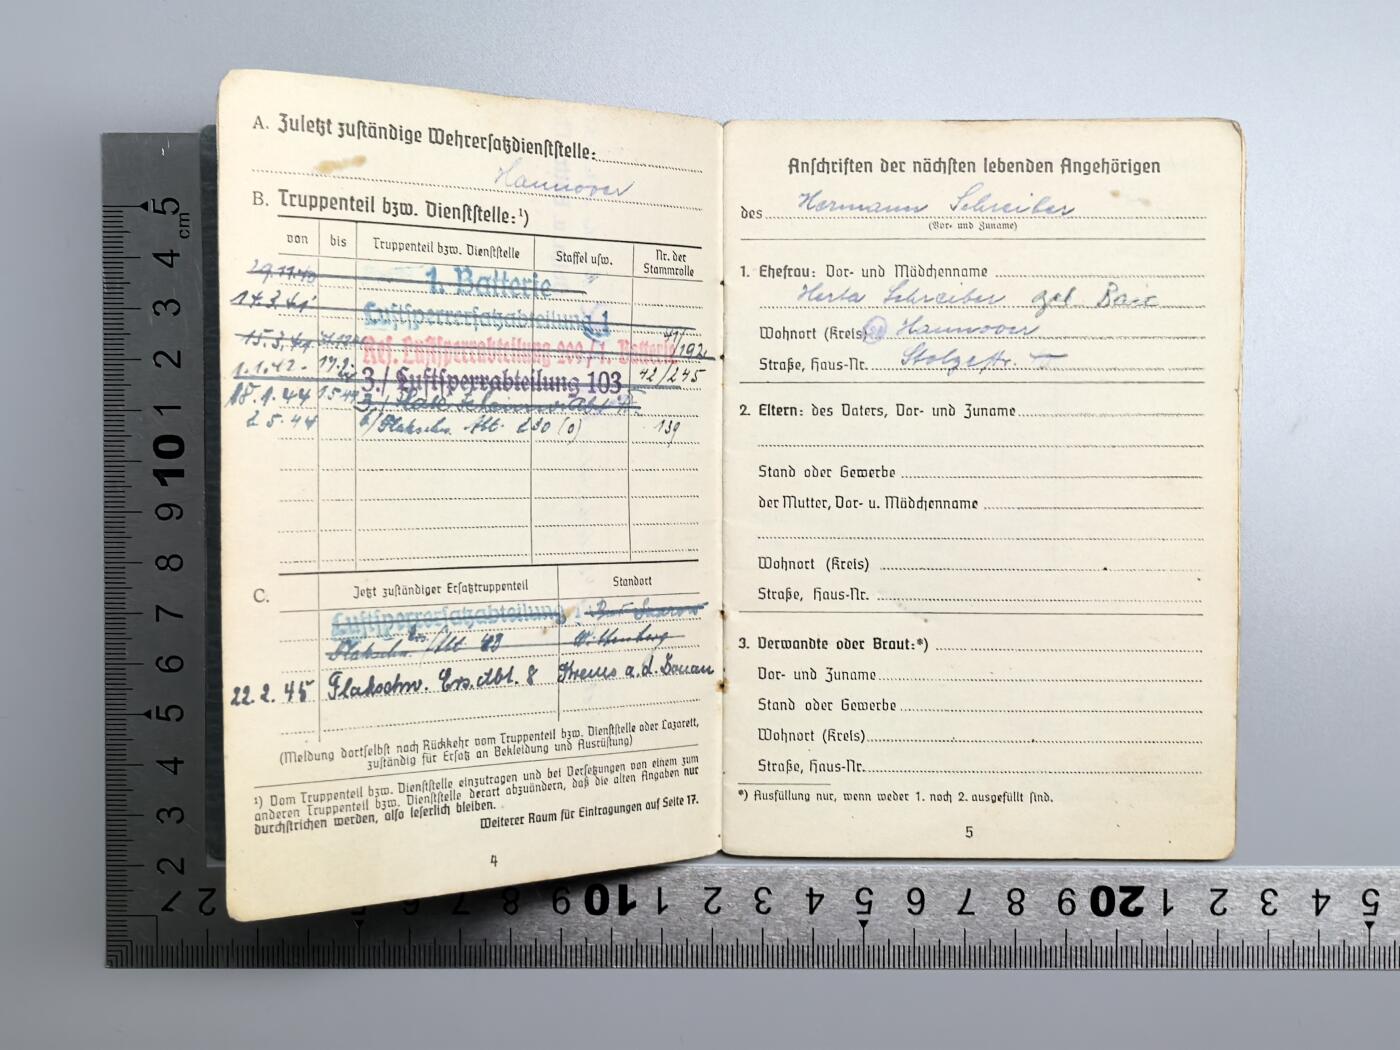 A. Zuletzt zuständige Wehrersatzdienststelle:
Hannover
B. Truppenteil bzw. Dienststelle:¹)
von bis Truppenteil bzw. Dienststelle Staffel usw. Nr. der Stammrolle
29.11.40 1. Batterie
14.3.41 Luftsperrersatzabteilung 1
15.3.41 Res. Luftsperrabteilung 200/1. Batterie 41/192
1.1.42 3./Luftsperrabteilung 103 42/245
18.1.44
2.5.44 6/Flakschw. Abt. 230 (o) 139
C. Jetzt zuständiger Ersatztruppenteil Standort
Luftsperrersatzabteilung 1 Bad Saarow
Flakschw. Ers./Abt Wittenberg
22.2.45 Flakschw. Ers. Abt. 8 Krems a.d. Donau
(Meldung dortselbst nach Rückkehr vom Truppenteil bzw. Dienststelle oder Lazarett,
zuständig für Ersatz an Bekleidung und Ausrüstung)
¹) Vom Truppenteil bzw. Dienststelle einzutragen und bei Versetzungen von einem zum
anderen Truppenteil bzw. Dienststelle derart abzuändern, daß die alten Angaben nur
durchstrichen werden, also leserlich bleiben.
Weiterer Raum für Eintragungen auf Seite 17.
4
Anschriften der nächsten lebenden Angehörigen
des Hermann Schreiber
(Vor- und Zuname)
1. Ehefrau: Vor- und Mädchenname
Herta Schreiber geb.
Wohnort (Kreis) Hannover
Straße, Haus-Nr. Stolzestr.
2. Eltern: des Vaters, Vor- und Zuname
Stand oder Gewerbe
der Mutter, Vor- u. Mädchenname
Wohnort (Kreis)
Straße, Haus-Nr.
3. Verwandte oder Braut:*)
Vor- und Zuname
Stand oder Gewerbe
Wohnort (Kreis)
Straße, Haus-Nr.
*) Ausfüllung nur, wenn weder 1. noch 2. ausgefüllt sind.
5
5 cm 4 3 2 1 10 9 8 7 6 5 4 3 2 1
2 6 7 8 9 10 1 2 3 4 5 6 7 8 9 20 1 2 3 4 5